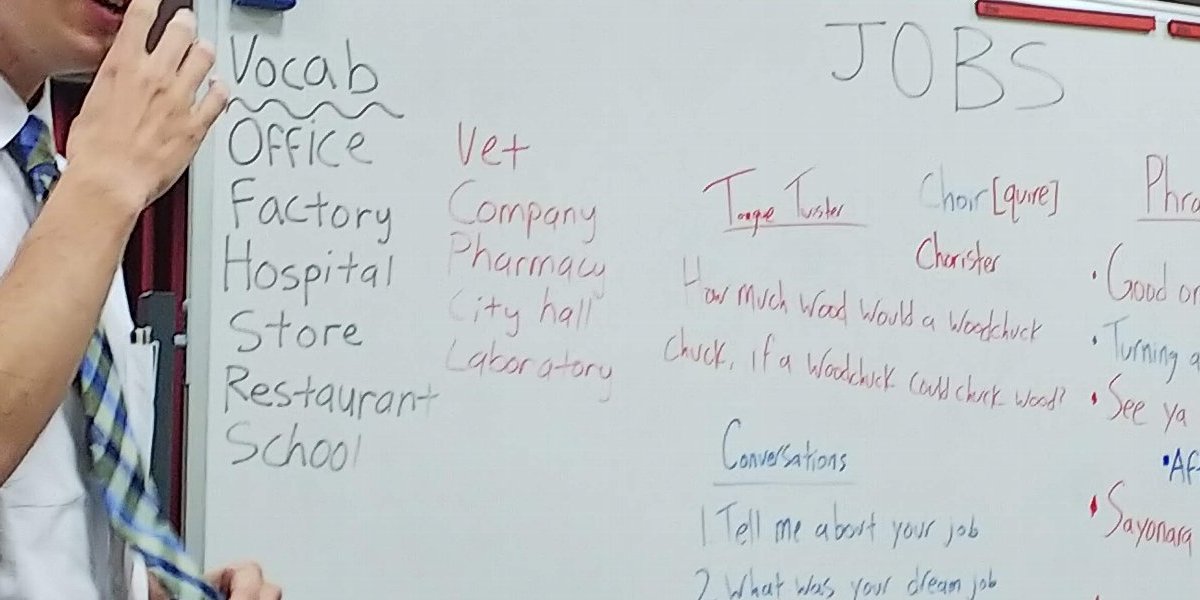 JOBS
Vocab
Office
Factory
Hospital
Store
Restaurant
School
Vet
Company
Pharmacy
City hall
Laboratory
Tongue Twister
Choir [quire]
Chorister
How much wood would a woodchuck
chuck, if a woodchuck could chuck wood?
Conversations
1 Tell me about your job
2 What was your dream job
Phra
• Good on
• Turning a
• See ya
• Af
• Sayonara